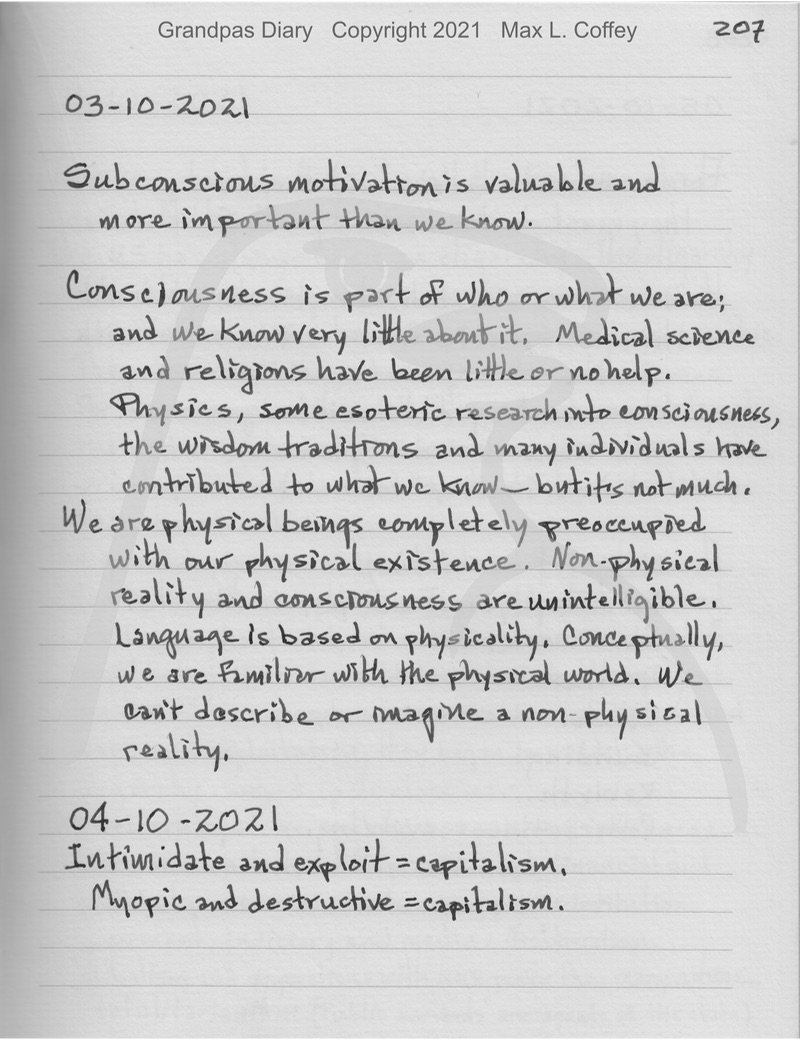 Grandpas Diary Copyright 2021 Max L. Coffey 207
03-10-2021
Subconscious motivation is valuable and
more important than we know.
Consciousness is part of who or what we are;
and we know very little about it. Medical science
and religions have been little or no help.
Physics, some esoteric research into consciousness,
the wisdom traditions and many individuals have
contributed to what we know—but it's not much.
We are physical beings completely preoccupied
with our physical existence. Non-physical
reality and consciousness are unintelligible.
Language is based on physicality. Conceptually,
we are familiar with the physical world. We
can't describe or imagine a non-physical
reality.
04-10-2021
Intimidate and exploit = capitalism.
Myopic and destructive = capitalism.